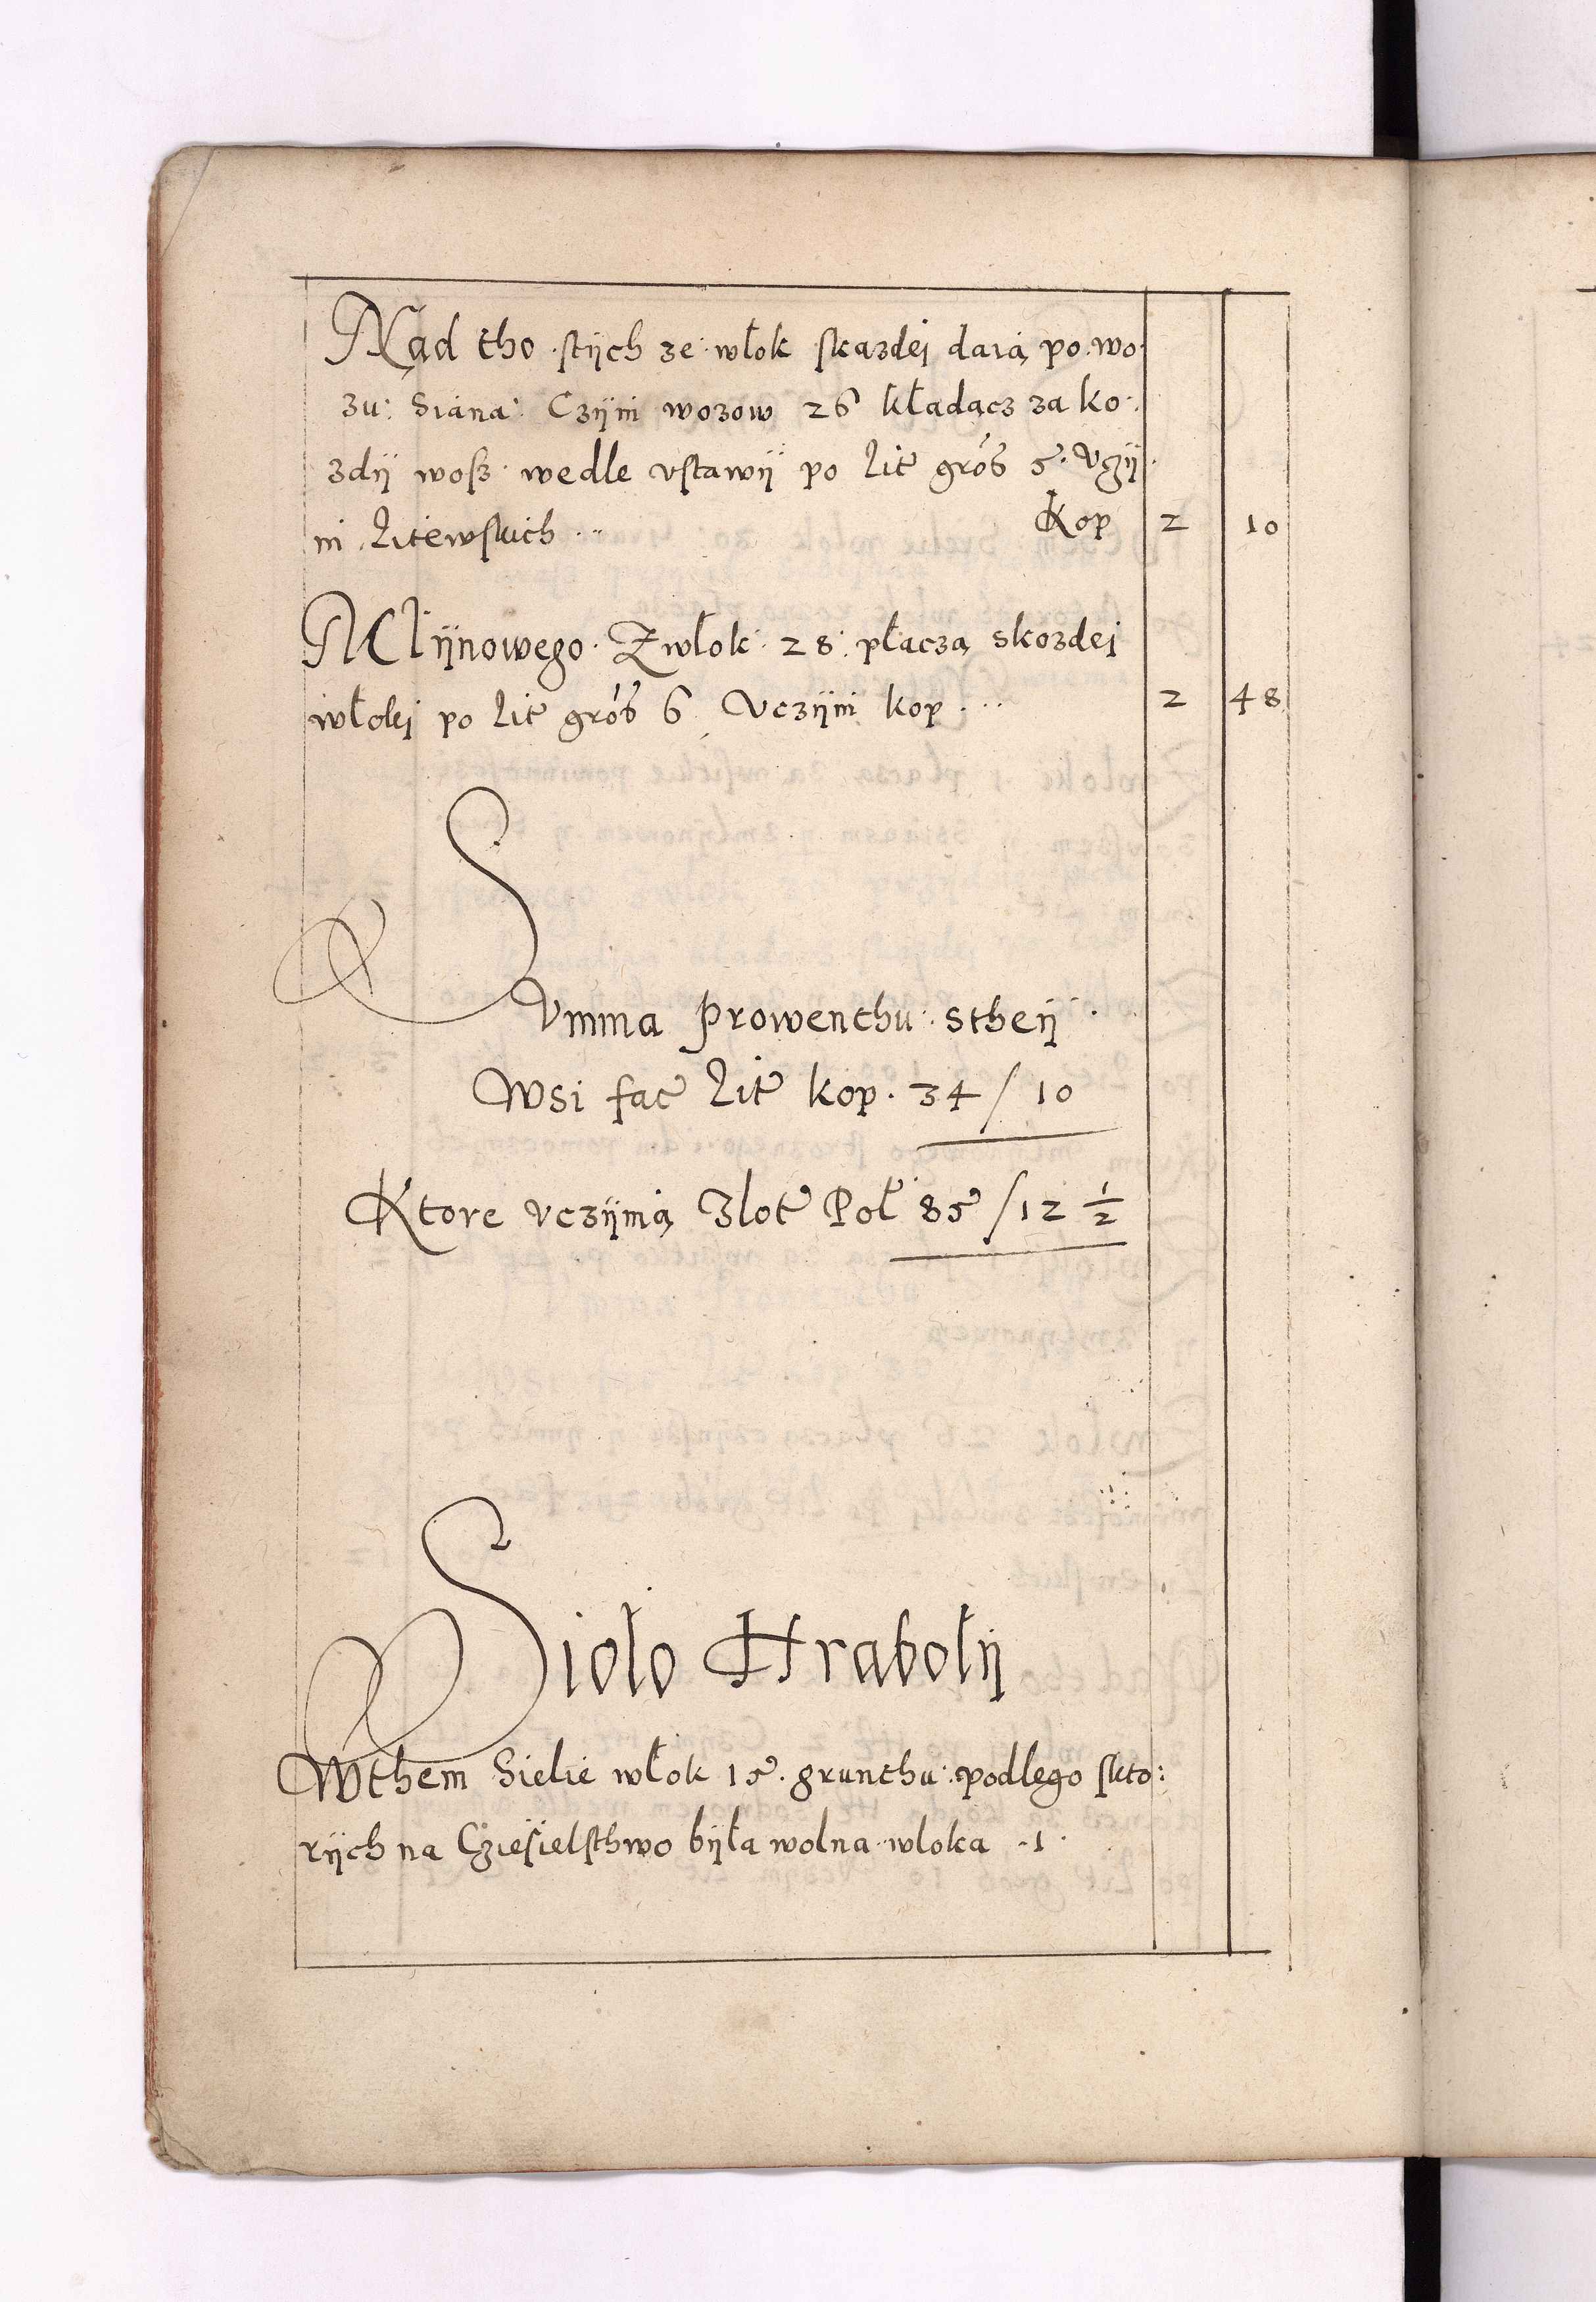 Nad tho stÿch ze włok skazdei daią po wo
zu Siana Czÿni wozow 26 kładącz za ko
zdÿ wosz wedle vstawÿ po lit grosz 5 Vczÿ
ni litewskich Kop 2 10
Młÿnowego Zwłok 28 płaczą skozdei
włoki po lit grosz 6 Vczÿni kop 2 48
Summa Prowenthu stheÿ
Wsi fac lit kop. 34 / 10
Ktore vczÿnią Złot Pol 85 / 12 ½
Sioło Hrabołÿ
Wthem Sielie włok 15. grunthu podlego skto
rÿch na Cziesielsthwo bÿła wolna wloka 1